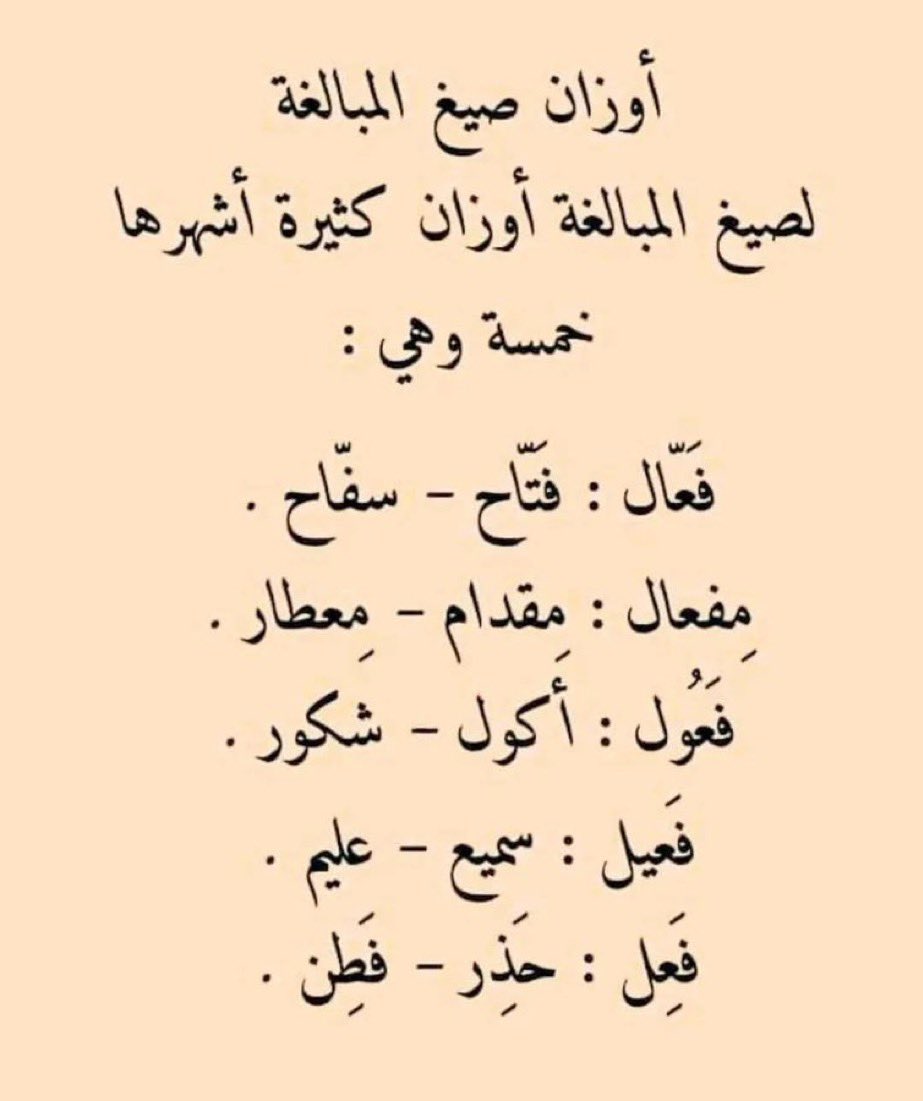 أوزان صيغ المبالغة
لصيغ المبالغة أوزان كثيرة أشهرها
خمسة وهي :
فَعَّال : فَتَّاح – سفَّاح .
مِفعال : مِقدام – مِعطار .
فَعُول : أَكول – شكور .
فَعيل : سميع – عليم .
فَعِل : حَذِر – فَطِن .